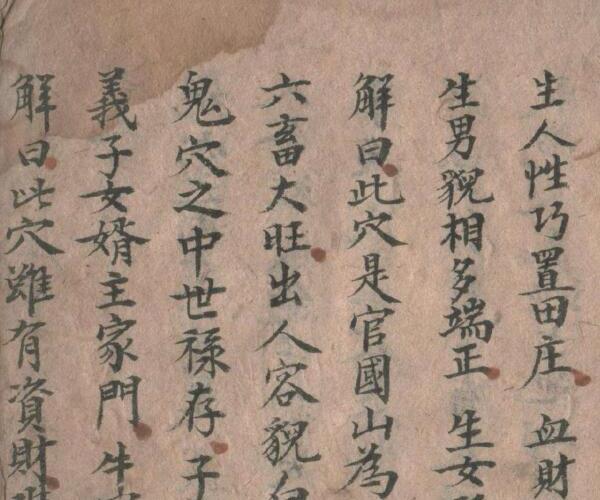 生人性巧置田庄 血財
生男貌相多端正 生女
解曰此穴是官國山為
六畜大旺出人容貌
鬼穴之中世祿存 子
義子女婿主家門 牛
解曰此穴雖有資財